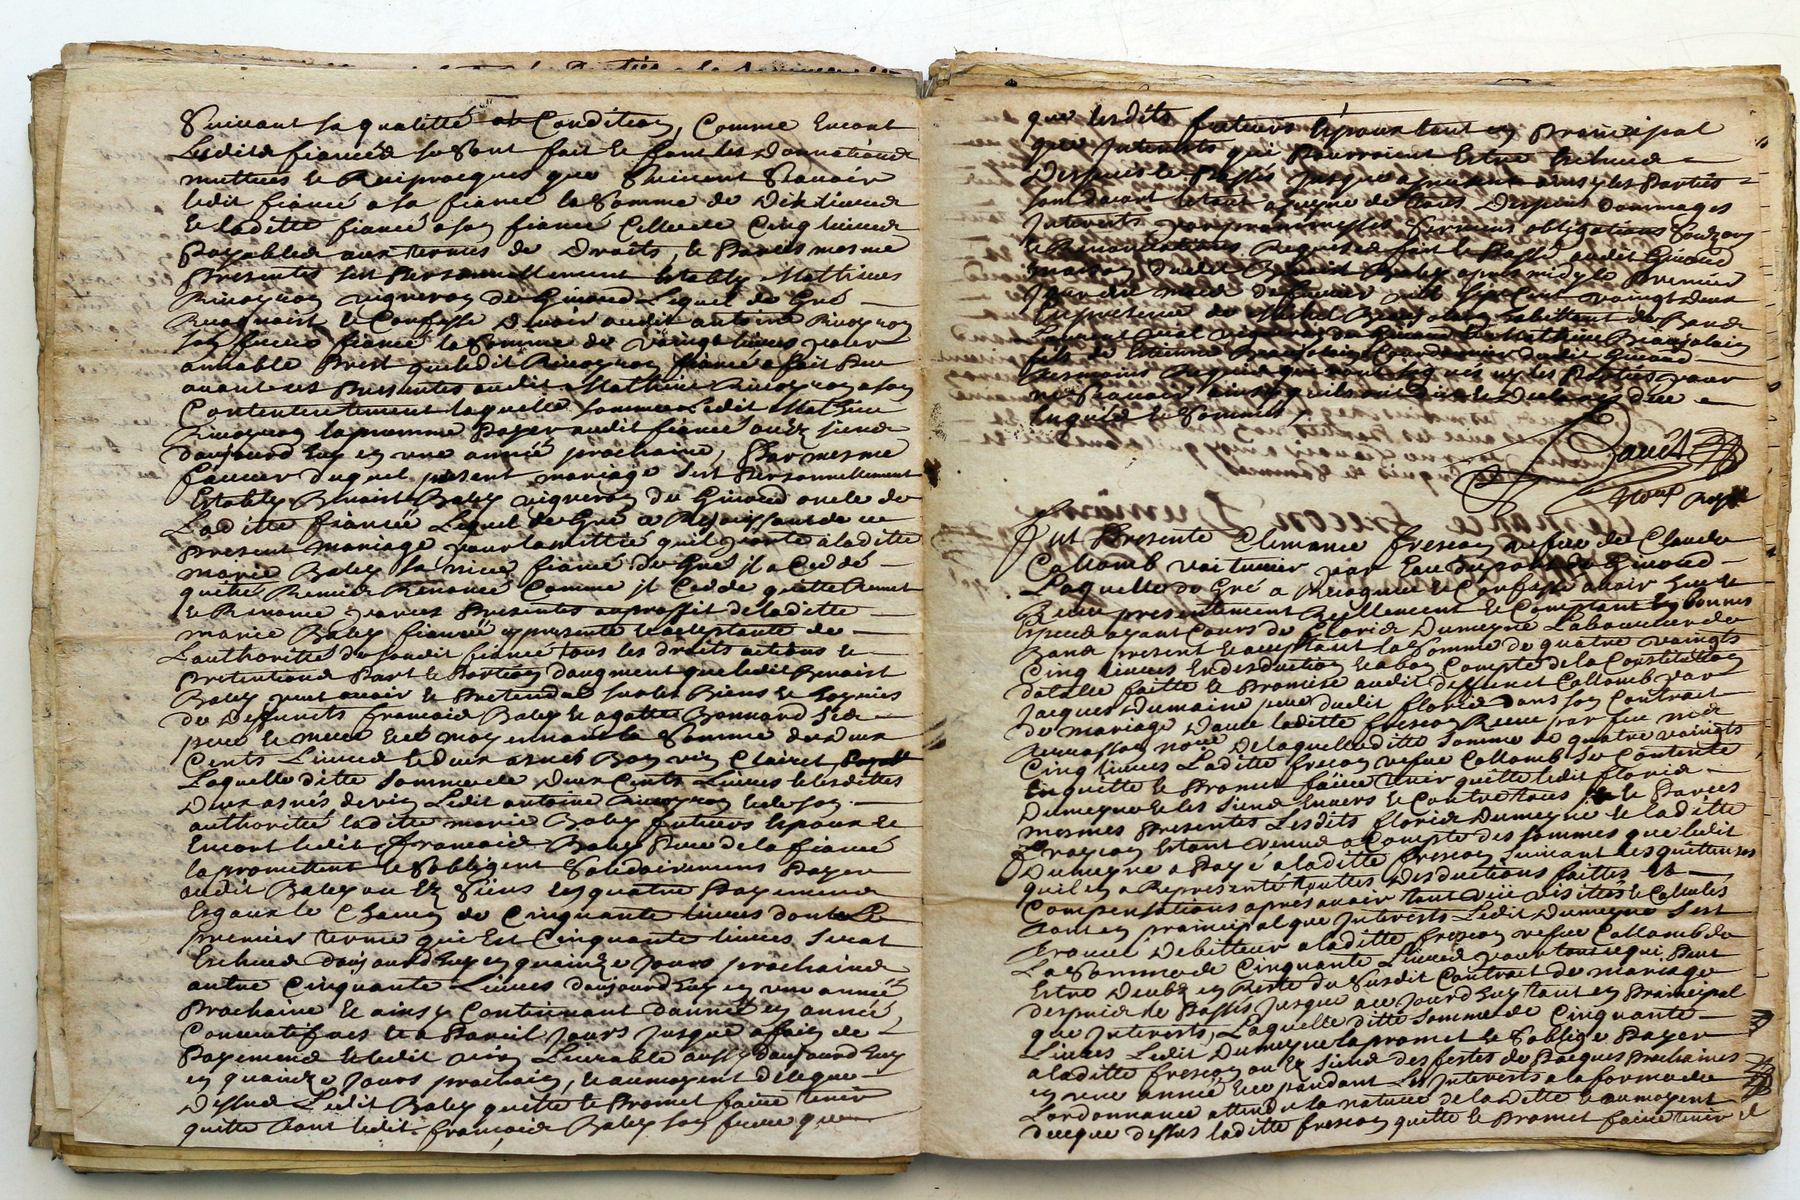 Suivant sa qualitté et Condition, Comme Encont
Lesdits fiancés se sont fait et font les Donnations
mutues et Reciprocques que Suivent Scauoir
ledit fiancé a sa fiance la Somme de Dix liures
et laditte fiancé a son fiancé Celle de Cinq liures
Payables aux termes de Droits, et Par ces mesme
Presentes sest Personnellement Estably Mathieu
vigneron de Giuord Lequel de Gré
Recognoist et Confesse Deuoir audit antoine
son fiancé la Somme de Vaingt liures pour
amiable Prest que ledit fiancé a fait
auant ces Presentes audit Mathieu a son
Contentement laquelle Somme Ledit Mathieu
la promme Payer audit fiancé ou es siens
daujourd huy en vne année prochaine, Par mesme
faueur duquel present mariage sest Personnellement
Estably Benoist Baley vigneron du Giuord oncle de
Laditte fiancée Lequel de Gré a de ce
Present mariage pour lamittié quil porte a laditte
marie Baley sa niece fiancé de Gré jl a Ceddé
quitté Remis Renoncé Comme jl Cedde quitte Remet
et Renonce par ces Presentes au proffit de laditte
marie Baley fiancée presente et acceptante de
Lauthoritté de sondit fiancé tous les droits actions et
Pretentions Part et Portion daugment que ledit Benoist
Baley peut auoir et Pretendre sur les Biens et hoyries
de Deffunts francois Baley et agatte Bonnard Ses
pere et mere et ce moyennant la Somme de deux
Cents Liures et deux asnés Bon vin Clairet
Laquelle ditte Somme de Deux Cents Liures et lesdittes
Deux asnés de vin Ledit antoine et de son
authoritté laditte marie Baley futturs Epoux et
Encort ledit francois Baley Pere de la fiancé
la promettent et Sobligent Solidairement Payer
audit Baley ou Es Siens en quatre Payemens
Esgaux et Chacun de Cinquante liures dont Le
premier terme qui Est Cinquante liures Serat
Escheus daujourdhuy en quainze jours prochains
autre Cinquante Liures daujourdhuy en vne année
Prochaine et ainsy Continuant dannée en année
Consecutifues et a Pareil Jours jusque a fain de
Payemens et ledit vin Liurable aussy daujourd huy
en quainze Jours prochain, et au moyent de ce que
Dessus Ledit Baley quitte et Promet faire tenir
quitte tant ledit francois Baley son frere que
que lesdits futturs Epoux tant en Prainicipal
que Jnterests qui Pourroient Estre Escheus
Despuis le Passés jusque a present ainsy les Parties
sont daccord le tout a peyne de tous Despens Dommages
Jnterests par promesses Sermens obligations
et Renonciations Requises fait et Passé audit Giuord
maison dudit Benoist Baley apres midy le Premier
Jour du mois de feurier mil Sept Cent vaingt deux
En presence de Michel Beaujolain habittant de Bans
Laurent vigneron du Giuord et Mathieu Beaujolain
fils de Estienne Beaujolain Cordonnier dudit Giuord
tesmoins Requis que nont signés ny les Parties pour
ne Scauoir ainsy quils ont Dit et Declarés de ce
Enquis et Sommés
nore royal
fut Presente Clemance frescon vefue de Claude
Collomb voiturier par Eau du port de Giuord
Laquelle de Gré a Recognu et Confesse auoir heu et
Receu presentement Reellement et Comptant En bonnes
Especes ayant Cours de floris Dumeyne Laboureur de
Bans present et acceptant la Somme de quatre vaingts
Cinq liures En desduction et a bon Compte de la Constitution
dotalle faitte et Promise audit deffunct Collomb par
Jacques Dumaine pere dudit floris dans son Contract
de mariage Dauec laditte frescon Receu par feu me
nore De laquelle ditte Somme de quatre vaingts
Cinq liures Laditte frescon vefue Collomb se Contente
En quitte et Promet faire tenir quitte ledit floris
Dumeyne et les Siens Enuers et Contre tous et Par ces
mesmes Presentes Lesdits floris Dumeyne et laditte
frescon Estant venus a Compte des sommes que ledit
Dumeyne a Payé a laditte frescon suivant les quittences
quil en a Representé touttes Desductions faittes et
Compensations apres auoir tout veü visittés et Calculés
tant en prainicipal que Jnterests Ledit Dumeyne Sest
trouué Debitteur a laditte frescon vefue Collomb de
La Somme de Cinquante Liures pour tout ce qui Peut
Estre Deubz en Reste du Susdit Contrait de mariage
despuis le Passés jusque a ce jourdhuy tant en Prainicipal
que Jnterests, Laquelle ditte Somme de Cinquante
Liures Ledit Dumeyne la promet et Soblige Payer
a laditte frescon ou Es Siens des festes de Pacques Prochaines
en vne année Et ce pendant Les Jnterests a la forme de
Lordonnance attendu la nature de la Ditte et au moyent
de ce que dessus laditte frescon quitte et Promet faire tenir